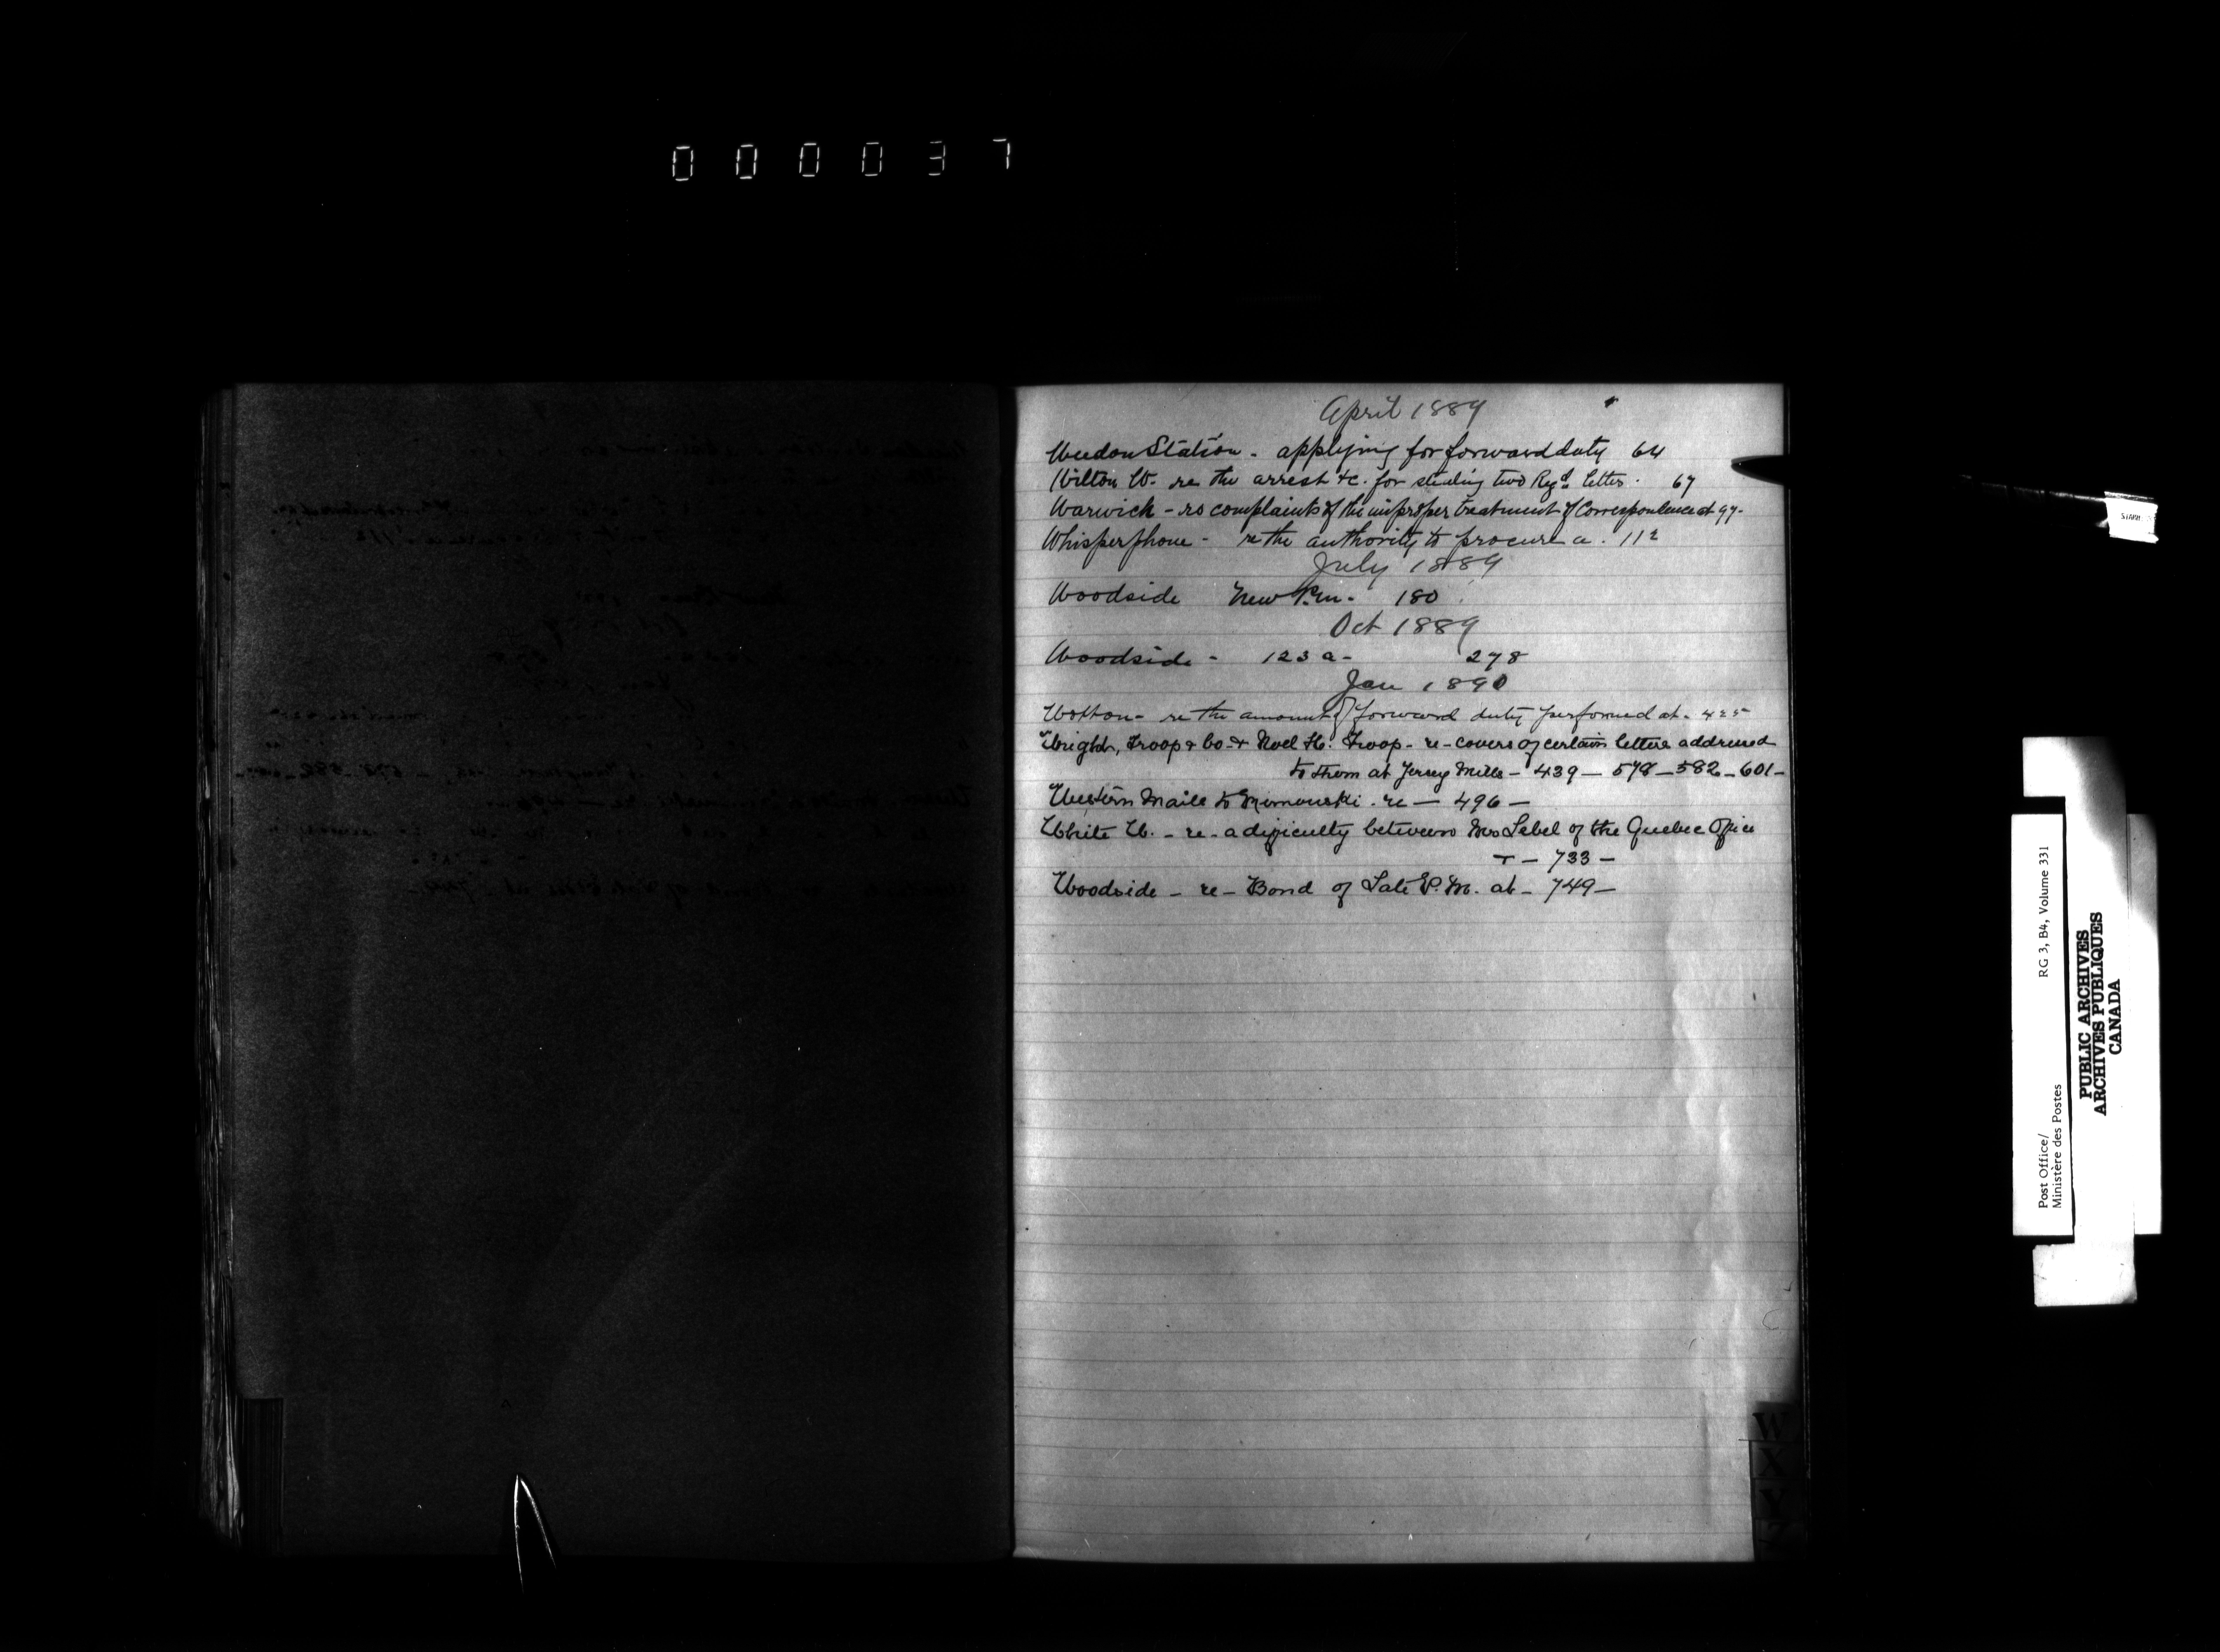 000037
April 1889
Weedon Station - applying for forward duty 64
Wilton W. re the arrest &c. for stealing two Regd. letters. 67
Warwick - re complaints of the improper treatment of Correspondence at 97-
Whisperphone - re the authority to procure a. 112
July 1889
Woodside New P.M. - 180
Oct 1889
Woodside - 123 a - 278
Jan 1890
Wotton - re the amount of forward duty performed at - 425
Wright, Troop & Co - & Noel H. Troop - re - covers of certain letters addressed
to them at Jersey Mills - 439 - 578 - 582 - 601 -
Western Mails to Rimouski - re - 496 -
White W. - re - a difficulty between Mr Lebel of the Quebec Office
& - 733 -
Woodside - re - Bond of Late P.M. at - 749 -
W
X
Y
Z
Post Office/
Ministère des Postes
RG 3, B4, Volume 331
PUBLIC ARCHIVES
ARCHIVES PUBLIQUES
CANADA